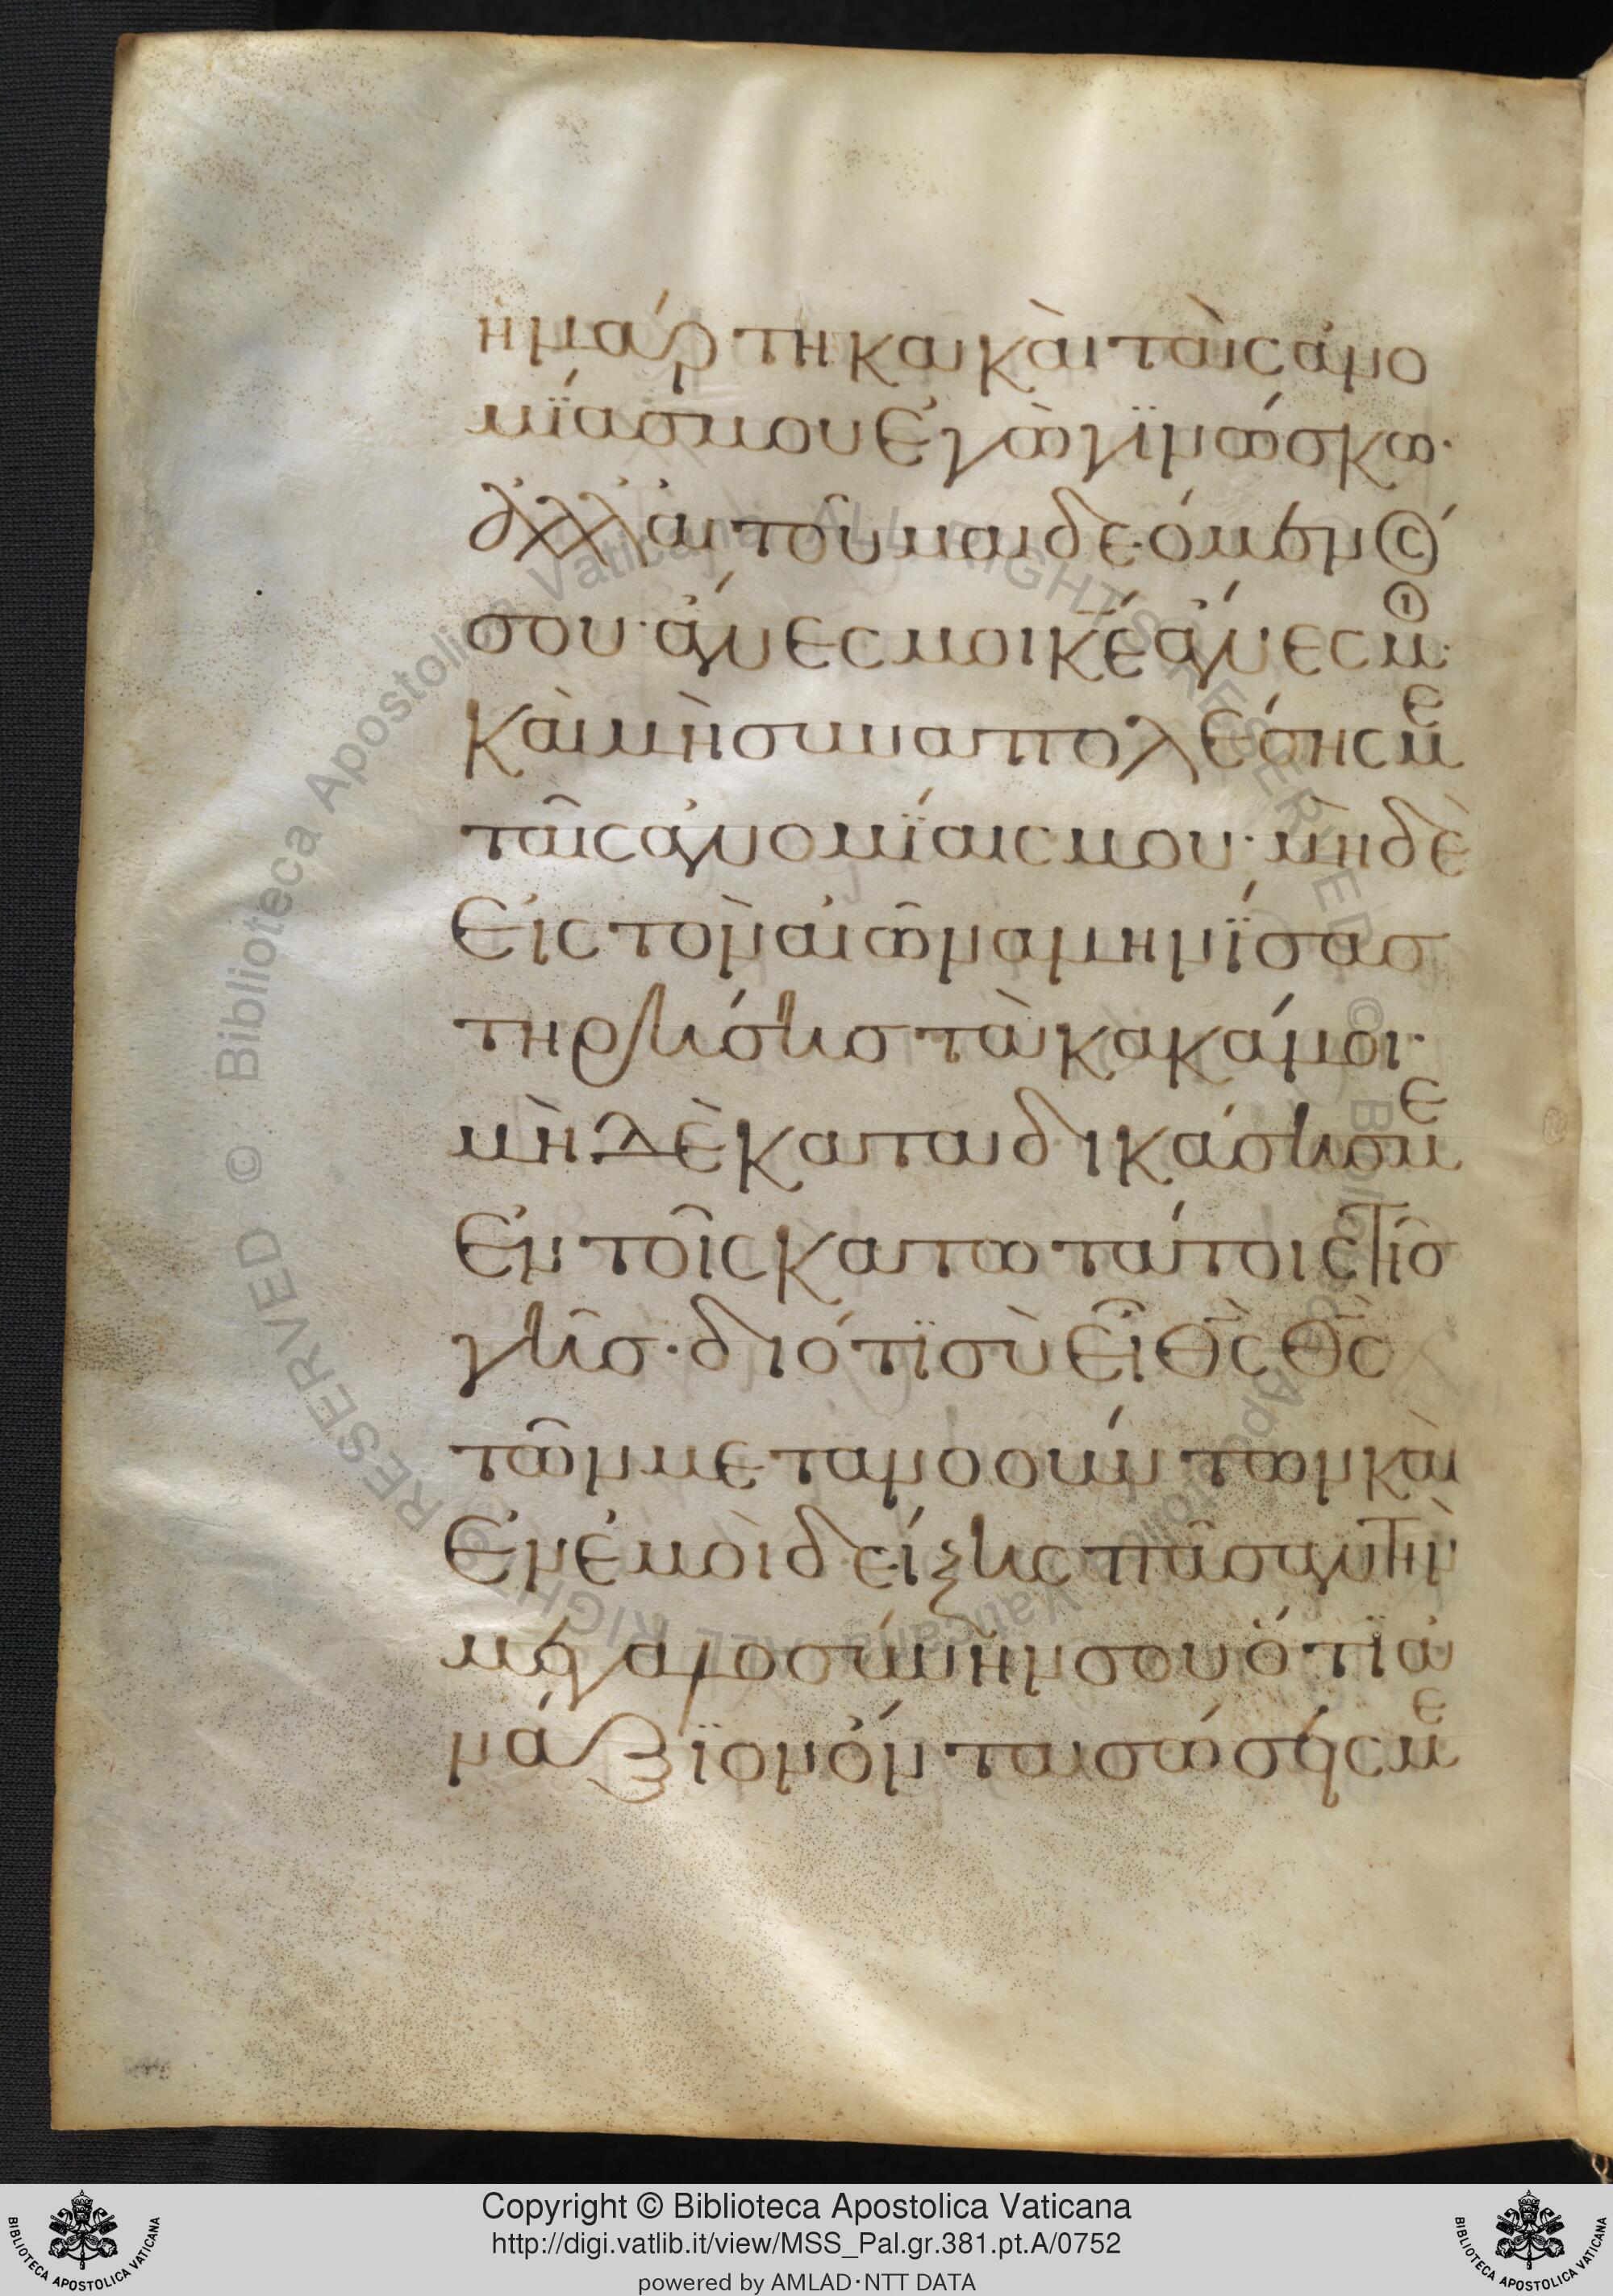 ἡμάρτηκα καὶ τὰς ἀνο
μίας μου ἐγὼ γινώσκω·
ἀλλ' αἰτοῦμαι δεόμενός
σου· ἄνες μοι κέ ἄνες μοι·
καὶ μὴ συναπολέσης με
ταῖς ἀνομίαις μου· μηδὲ
εἰς τὸν αἰῶνα μηνίσας
τηρήσης τὰ κακά μοι·
μηδὲ καταδικάσης με
ἐν τοῖς κατωτάτοις τῆς
γῆς· διότι σὺ εἶ θς θς
τῶν μετανοούντων καὶ
ἐν ἐμοὶ δείξης πᾶσαν τὴν
μεγαλοσύνην σου ὅτι ἀ
νάξιον ὄντα σώσεις με
Copyright © Biblioteca Apostolica Vaticana
http://digi.vatlib.it/view/MSS_Pal.gr.381.pt.A/0752
powered by AMLAD·NTT DATA
BIBLIOTECA APOSTOLICA VATICANA
BIBLIOTECA APOSTOLICA VATICANA